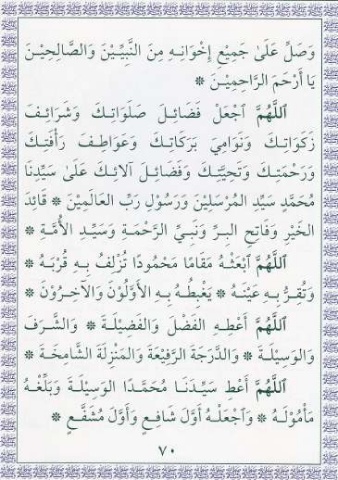 وَصَلِّ عَلَىٰ جَمِيْعِ إِخْوَانِهِ مِنَ النَّبِيِّيْنَ وَالصَّالِحِيْنَ
يَا أَرْحَمَ الرَّاحِمِيْنَ ❁
اَللّٰهُمَّ اجْعَلْ فَضَائِلَ صَلَوَاتِكَ وَشَرَائِفَ
زَكَوَاتِكَ وَنَوَامِيَ بَرَكَاتِكَ وَعَوَاطِفَ رَأْفَتِكَ
وَرَحْمَتِكَ وَتَحِيَّتِكَ وَفَضَائِلَ آلَائِكَ عَلَىٰ سَيِّدِنَا
مُحَمَّدٍ سَيِّدِ الْمُرْسَلِيْنَ وَرَسُوْلِ رَبِّ الْعَالَمِيْنَ ❁ قَائِدِ
الْخَيْرِ وَفَاتِحِ الْبِرِّ وَنَبِيِّ الرَّحْمَةِ وَسَيِّدِ الْأُمَّةِ ❁
اَللّٰهُمَّ ابْعَثْهُ مَقَامًا مَحْمُوْدًا تُزْلِفُ بِهِ قُرْبَهُ ❁
وَتُقِرُّ بِهِ عَيْنَهُ ❁ يَغْبِطُهُ بِهِ الْأَوَّلُوْنَ وَالْآخِرُوْنَ ❁
اَللّٰهُمَّ أَعْطِهِ الْفَضْلَ وَالْفَضِيْلَةَ ❁ وَالشَّرَفَ
وَالْوَسِيْلَةَ ❁ وَالدَّرَجَةَ الرَّفِيْعَةَ وَالْمَنْزِلَةَ الشَّامِخَةَ ❁
اَللّٰهُمَّ أَعْطِ سَيِّدَنَا مُحَمَّدًا الْوَسِيْلَةَ وَبَلِّغْهُ
مَأْمُوْلَهُ ❁ وَاجْعَلْهُ أَوَّلَ شَافِعٍ ❁ وَأَوَّلَ مُشَفَّعٍ ❁
٧٠